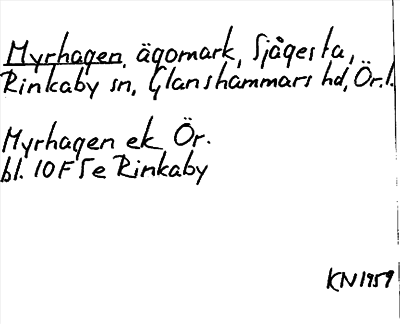 Myrhagen, ägomark, Sjågesta,
Rinkaby sn, Glanshammars hd, Ör.l.
Myrhagen ek Ör.
bl. 10F 5e Rinkaby
KN1959